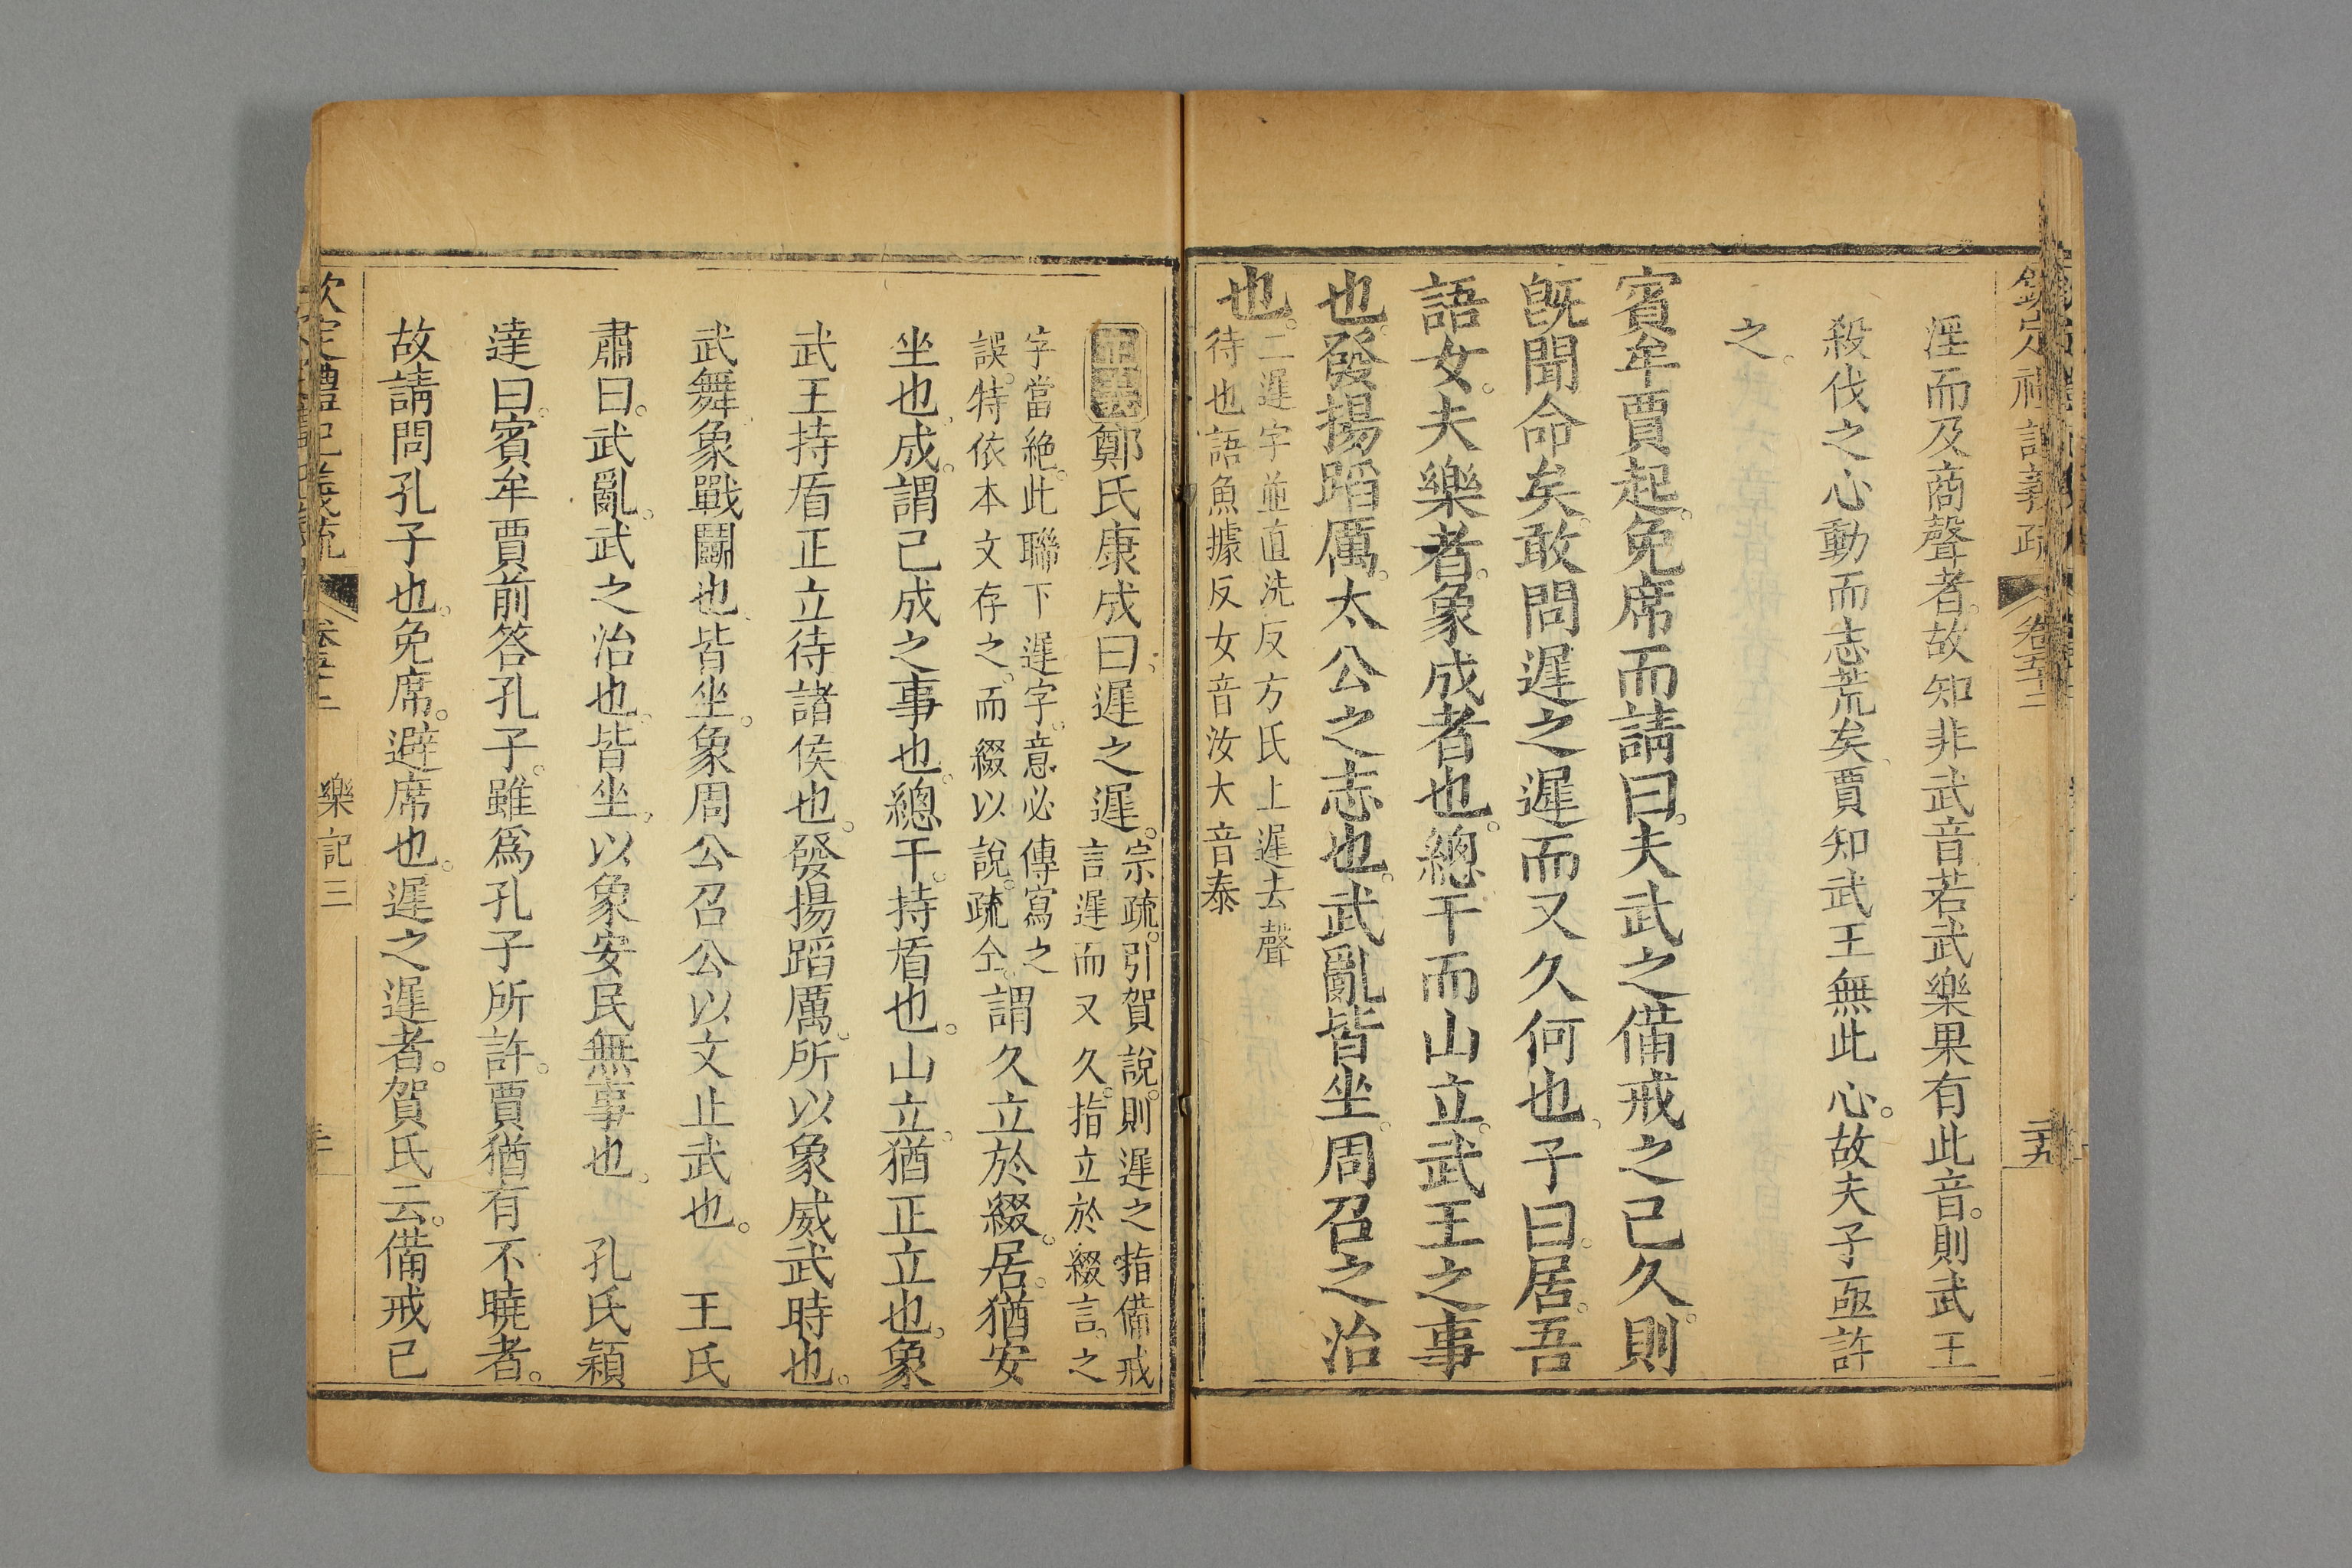 欽定禮記義疏 卷五十二 二十九
淫而及商聲者故知非武音若武樂果有此音則武王
殺伐之心動而志荒矣賈知武王無此心故夫子亟許
之
賓牟賈起免席而請曰夫武之備戒之已久則
旣聞命矣敢問遲之遲而又久何也子曰居吾
語女夫樂者象成者也總干而山立武王之事
也發揚蹈厲太公之志也武亂皆坐周召之治
也
二遲字並直洗反方氏上遲去聲
待也語魚據反女音汝大音泰
鄭氏康成曰遲之遲
宗疏引賀說則遲之指備戒
言遲而又久指立於綴言之
字當絶此聯下遲字意必傳寫之
誤特依本文存之而綴以說疏仝
謂久立於綴居猶安
坐也成謂已成之事也總干持盾也山立猶正立也象
武王持盾正立待諸侯也發揚蹈厲所以象威武時也
武舞象戰鬭也皆坐象周公召公以文止武也 王氏
肅曰武亂武之治也皆坐以象安民無事也 孔氏穎
達曰賓牟賈前答孔子雖爲孔子所許賈猶有不曉者
故請問孔子也免席避席也遲之遲者賀氏云備戒已
欽定禮記義疏 卷五十二 樂記三